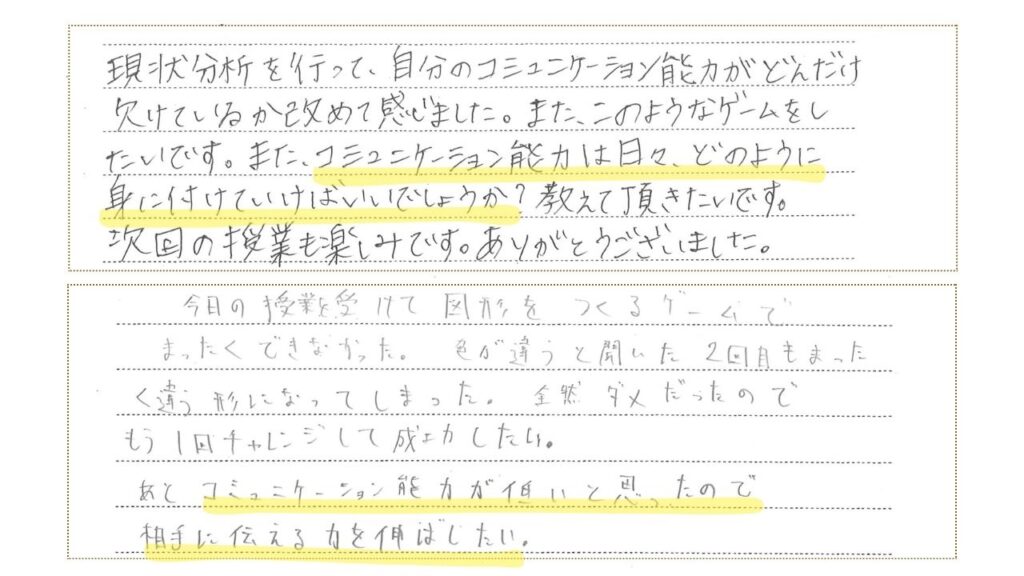 現状分析を行って、自分のコミュニケーション能力がどんだけ
欠けているか改めて感じました。また、このようなゲームをし
たいです。また、コミュニケーション能力は日々、どのように
身に付けていけばいいでしょうか？教えて頂きたいです。
次回の授業も楽しみです。ありがとうございました。
今日の授業を受けて図形をつくるゲームで
まったくできなかった。色が違うと聞いた2回目もまった
く違う形になってしまった。全然ダメだったので
もう1回チャレンジして成功したい。
あとコミュニケーション能力が低いと思ったので
相手に伝える力を伸ばしたい。